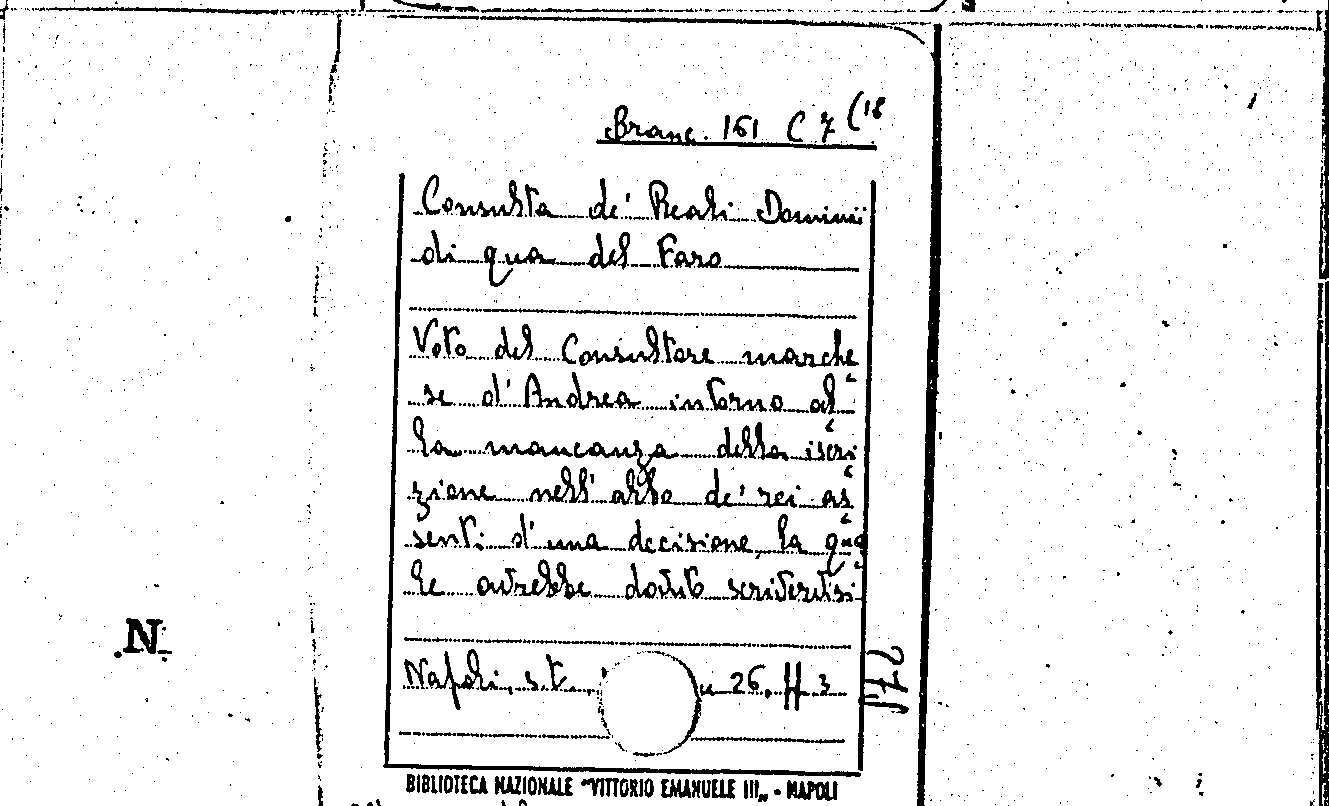 Branc. 161 C 7 (18
Consulta de' Reali Dominii
di qua del Faro
Voto del Consultore marche
se d'Andrea intorno al
la mancanza della iscri
zione nell'albo de' rei as
senti d'una decisione, la qua
le avrebbe dovuto scriversi
Napoli, s.t., 26, ff 3
N
BIBLIOTECA NAZIONALE "VITTORIO EMANUELE III„ - NAPOLI